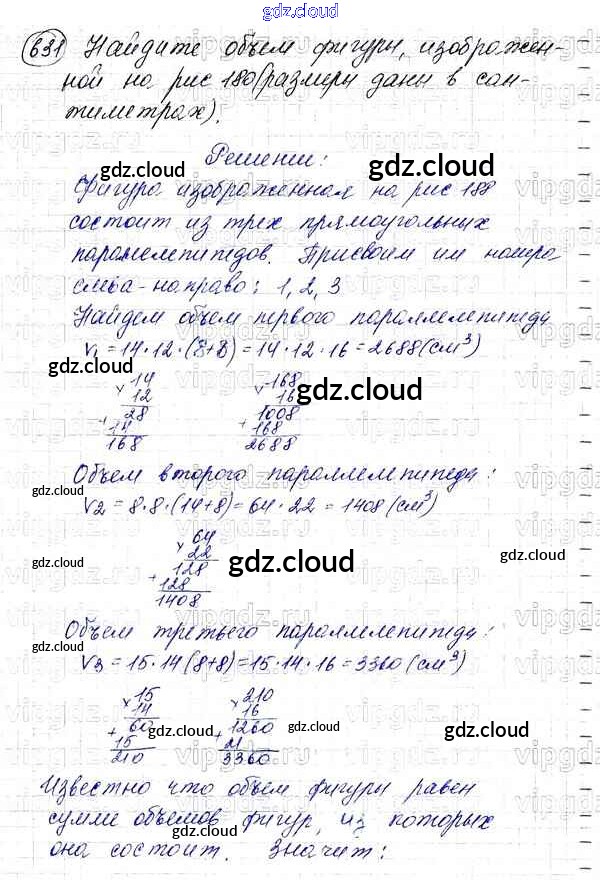 gdz.cloud
631 Найдите объем фигуры, изображен-
ной на рис 180 (размеры даны в сан-
тиметрах).
Решении:
gdz.cloud gdz.cloud
Фигура изображенная на рис 188
состоит из трех прямоугольных
параллелепипедов. Присвоим им номера
слева-направо: 1, 2, 3
Найдем объем первого параллелепипеда
V1 = 14·12·(8+8) = 14·12·16 = 2688 (см³)
gdz.cloud gdz.cloud
× 14 × 168
12 16
28 1008
+ 14 + 168
168 2688
gdz.cloud gdz.cloud
Объем второго параллелепипеда:
V2 = 8·8·(14+8) = 64·22 = 1408 (см³)
gdz.cloud gdz.cloud
× 64
22
128
+ 128
1408
gdz.cloud gdz.cloud gdz.cloud
Объем третьего параллелепипеда:
V3 = 15·14(8+8) = 15·14·16 = 3360 (см³)
gdz.cloud gdz.cloud
× 15 × 210
14 16
60 1260
+ 15 + 21
210 3360
gdz.cloud gdz.cloud gdz.cloud
Известно что объем фигуры равен
сумми объемов фигур, из которых
она состоит. Значит:
gdz.cloud gdz.cloud